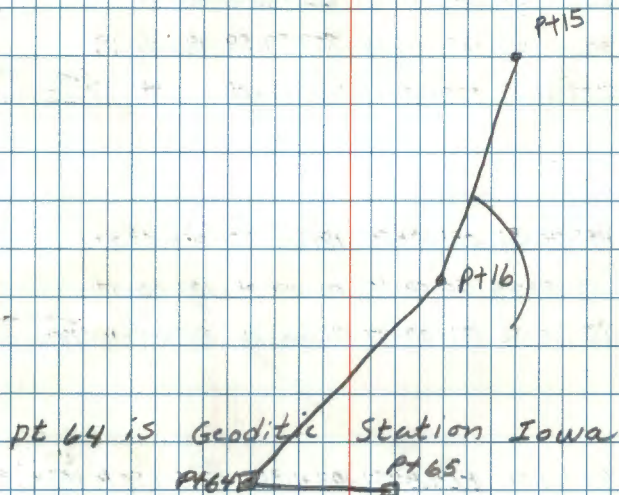 pt15
pt16
pt 64 is Geoditic Station Iowa
pt64
pt 65